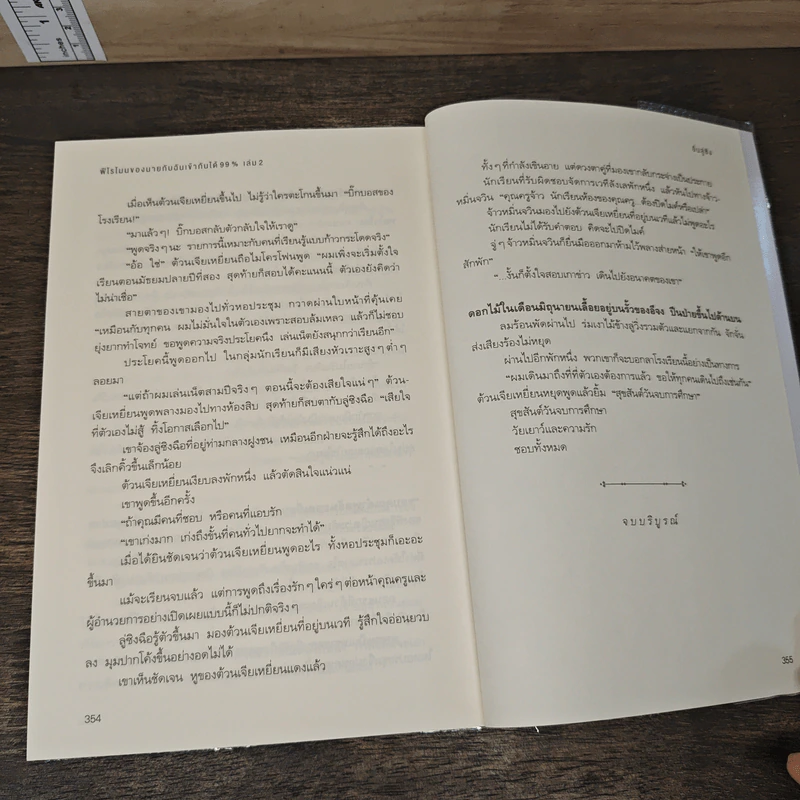 ฟีโรโมนของนายกับฉันเข้ากันได้ 99 % เล่ม 2
เมื่อเห็นต้วนเจียเหยี่ยนขึ้นไป ไม่รู้ว่าใครตะโกนขึ้นมา “บิ๊กบอสของ
โรงเรียน!”
“มาแล้วๆ! บิ๊กบอสกลับตัวกลับใจให้เราดู”
“พูดจริงๆ นะ รายการนี้เหมาะกับคนที่เรียนรู้แบบก้าวกระโดดจริง”
“อ้อ ใช่” ต้วนเจียเหยี่ยนถือไมโครโฟนพูด “ผมเพิ่งจะเริ่มตั้งใจ
เรียนตอนมัธยมปลายปีที่สอง สุดท้ายก็สอบได้คะแนนนี้ ตัวเองยังคิดว่า
ไม่น่าเชื่อ”
สายตาของเขามองไปทั่วหอประชุม กวาดผ่านใบหน้าที่คุ้นเคย
“เหมือนกับทุกคน ผมไม่มั่นใจในตัวเองเพราะสอบล้มเหลว แล้วก็ไม่ชอบ
ยุ่งยากทำโจทย์ ขอพูดความจริงประโยคนึง เล่นเน็ตยังสนุกกว่าเรียนอีก”
ประโยคนี้พูดออกไป ในกลุ่มนักเรียนก็มีเสียงหัวเราะสูงๆ ต่ำๆ
ลอยมา
“แต่ถ้าผมเล่นเน็ตสามปีจริงๆ ตอนนี้จะต้องเสียใจแน่ๆ” ต้วน-
เจียเหยี่ยนพูดพลางมองไปทางห้องสิบ สุดท้ายก็สบตากับลู่ซิงฉือ “เสียใจ
ที่ตัวเองไม่สู้ ทิ้งโอกาสเลือกไป”
เขาจ้องลู่ซิงฉือที่อยู่ท่ามกลางฝูงชน เหมือนอีกฝ่ายจะรู้สึกได้ถึงอะไร
จึงเลิกคิ้วขึ้นเล็กน้อย
ต้วนเจียเหยี่ยนเงียบลงพักหนึ่ง แล้วตัดสินใจแน่วแน่
เขาพูดขึ้นอีกครั้ง
“ถ้าคุณมีคนที่ชอบ หรือคนที่แอบรัก
“เขาเก่งมาก เก่งถึงขั้นที่คนทั่วไปยากจะทำได้”
เมื่อได้ยินชัดเจนว่าต้วนเจียเหยี่ยนพูดอะไร ทั้งหอประชุมก็เอะอะ
ขึ้นมา
แม้จะเรียนจบแล้ว แต่การพูดถึงเรื่องรักๆ ใคร่ๆ ต่อหน้าคุณครูและ
ผู้อำนวยการอย่างเปิดเผยแบบนี้ก็ไม่ปกติจริงๆ
ลู่ซิงฉือรู้ตัวขึ้นมา มองต้วนเจียเหยี่ยนที่อยู่บนเวที รู้สึกใจอ่อนยวบ
ลง มุมปากโค้งขึ้นอย่างอดไม่ได้
เขาเห็นชัดเจน หูของต้วนเจียเหยี่ยนแดงแล้ว
354
ทั้งๆ ที่กำลังเขินอาย แต่ดวงตาคู่ที่มองเขากลับกระจ่างเป็นประกาย
นักเรียนที่รับผิดชอบจัดการเวทีลังเลพักหนึ่ง แล้วหันไปทางจ้าว-
หมิ่นจวิน “คุณครูจ้าว นักเรียนห้องของคุณครู...ต้องปิดไมค์หรือเปล่า”
จ้าวหมิ่นจวินมองไปยังต้วนเจียเหยี่ยนที่อยู่บนเวทีแล้วไม่พูดอะไร
นักเรียนไม่ได้รับคำตอบ คิดจะไปปิดไมค์
จู่ๆ จ้าวหมิ่นจวินก็ยื่นมือออกมาห้ามไว้พลางส่ายหน้า “ให้เขาพูดอีก
สักพัก”
“...งั้นก็ตั้งใจสอบเกาข่าว เดินไปยังอนาคตของเขา”
ดอกไม้ในเดือนมิถุนายนเลื้อยอยู่บนรั้วของอีจง ปีนป่ายขึ้นไปด้านบน
ลมร้อนพัดผ่านไป ร่มเงาไม้ข้างลู่วิ่งรวมตัวและแยกจากกัน จักจั่น
ส่งเสียงร้องไม่หยุด
ผ่านไปอีกพักหนึ่ง พวกเขาก็จะบอกลาโรงเรียนนี้อย่างเป็นทางการ
“ผมเดินมาถึงที่ที่ตัวเองต้องการแล้ว ขอให้ทุกคนเดินไปถึงเช่นกัน”
ต้วนเจียเหยี่ยนหยุดพูดแล้วยิ้ม “สุขสันต์วันจบการศึกษา”
สุขสันต์วันจบการศึกษา
วัยเยาว์และความรัก
ชอบทั้งหมด
จบบริบูรณ์
355